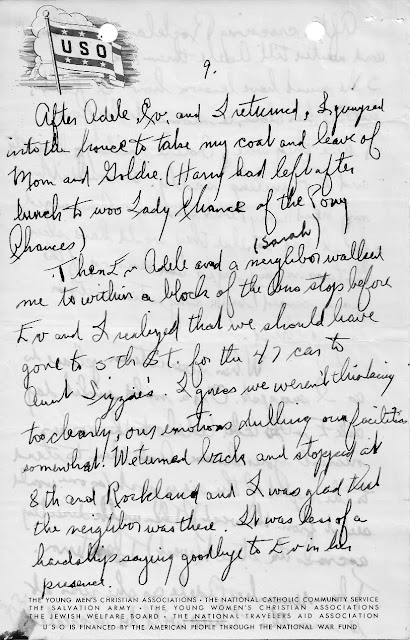 USO
9.
After Adele, Ev. and I returned, I jumped
into the house to take my coat and leave of
Mom and Goldie. (Harry had left after
lunch to woo Lady Chance of the Pony
Chances)
(Sarah)
Then Ev Adele and a neighbor walked
me to within a block of the bus stop before
Ev and I realized that we should have
gone to 5th St. for the 47 car to
Aunt Lizzie's. I guess we weren't thinking
too clearly, our emotions dulling our facilities
somewhat. We turned back and stopped at
8th and Rockland and I was glad that
the neighbor was there. It was less of a
hardship saying goodbye to Ev in her
presence.
THE YOUNG MEN'S CHRISTIAN ASSOCIATIONS · THE NATIONAL CATHOLIC COMMUNITY SERVICE
THE SALVATION ARMY · THE YOUNG WOMEN'S CHRISTIAN ASSOCIATIONS
THE JEWISH WELFARE BOARD · THE NATIONAL TRAVELERS AID ASSOCIATION
USO IS FINANCED BY THE AMERICAN PEOPLE THROUGH THE NATIONAL WAR FUND